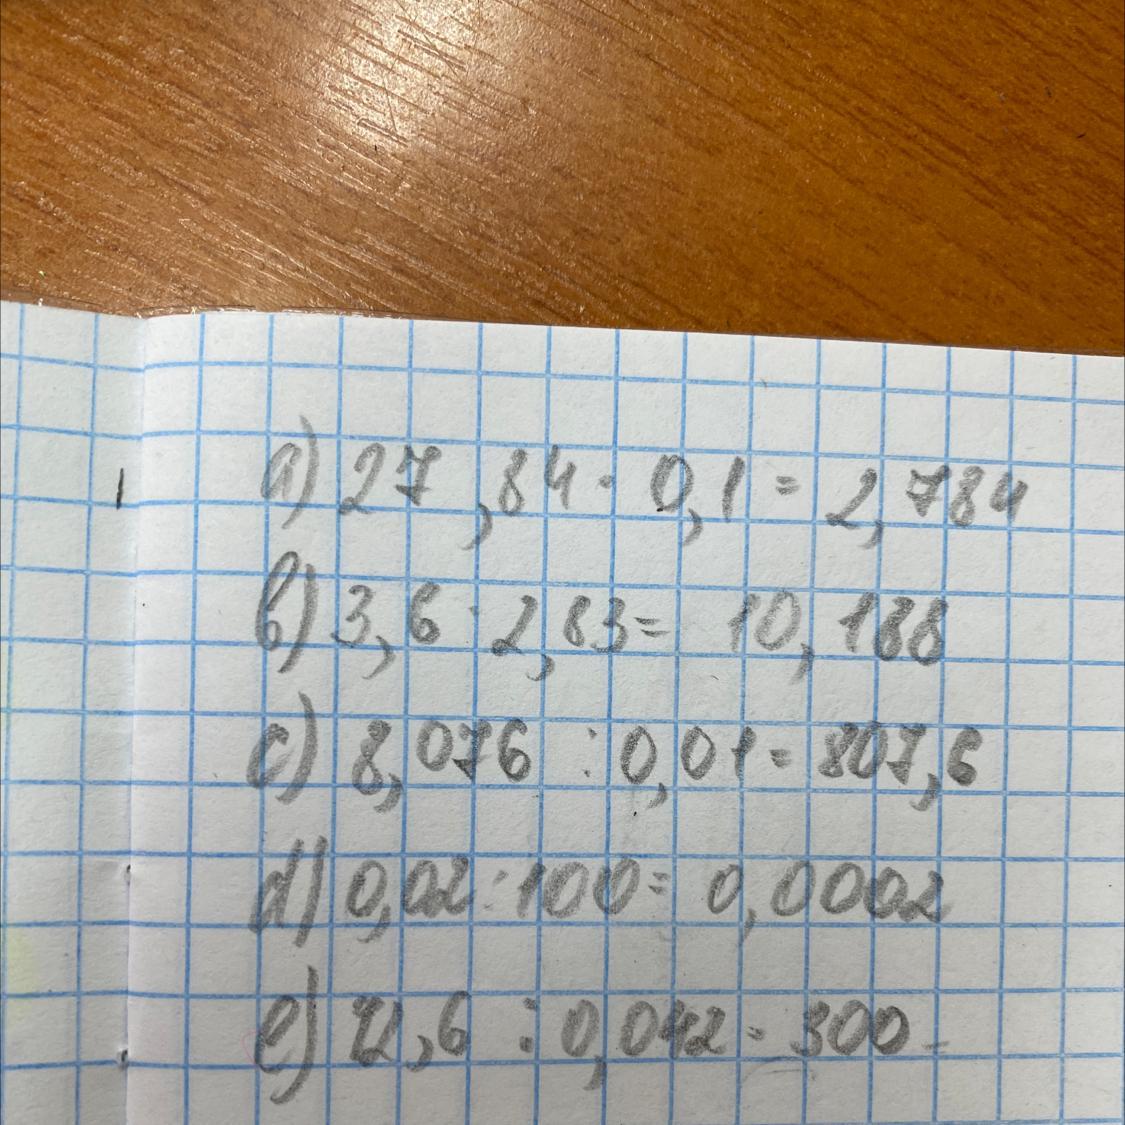 a) 27,84 · 0,1 = 2,784
b) 3,6 · 2,83 = 10,188
c) 8,076 : 0,01 = 807,6
d) 0,02 : 100 = 0,0002
e) 12,6 : 0,042 = 300